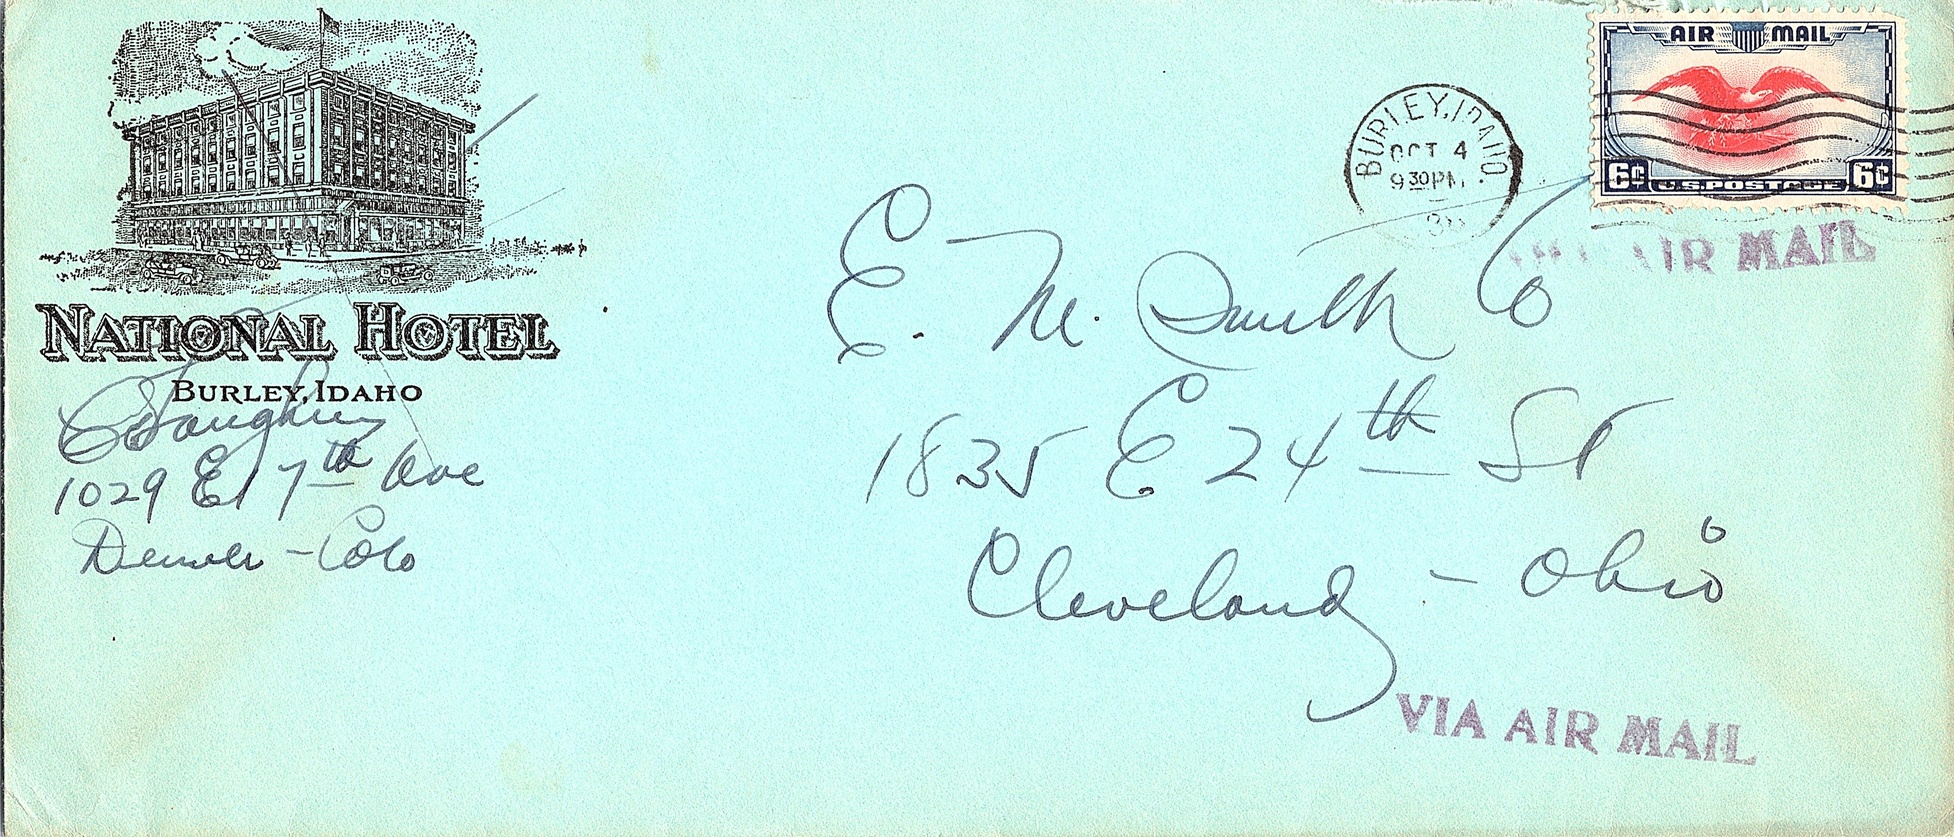 NATIONAL HOTEL
BURLEY, IDAHO
1029 E 7th Ave
Denver - Colo
BURLEY, IDAHO.
OCT 4
9 30 PM
AIR MAIL
6¢ U.S. POSTAGE 6¢
AIR MAIL
E. M. Smith Co
1835 E 24th St
Cleveland - Ohio
VIA AIR MAIL